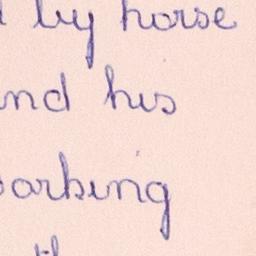 by horse
nd his
arking